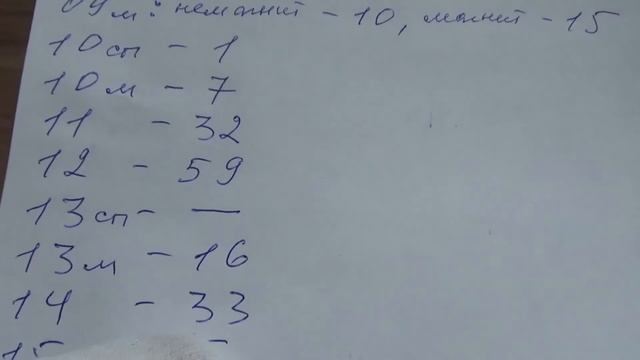 09м: немагнит - 10, магнит - 15
10сп - 1
10м - 7
11 - 32
12 - 59
13сп - —
13м - 16
14 - 33
15 -